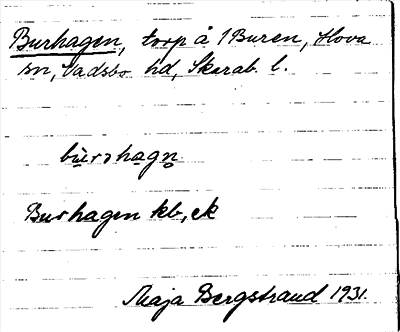 Burhagen, torp å 1 Buren, Hova
sn, Vadsbo hd, Skarab. l.
bùrɔhagn̥
Burhagen kb, ek
Maja Bergstrand 1931.